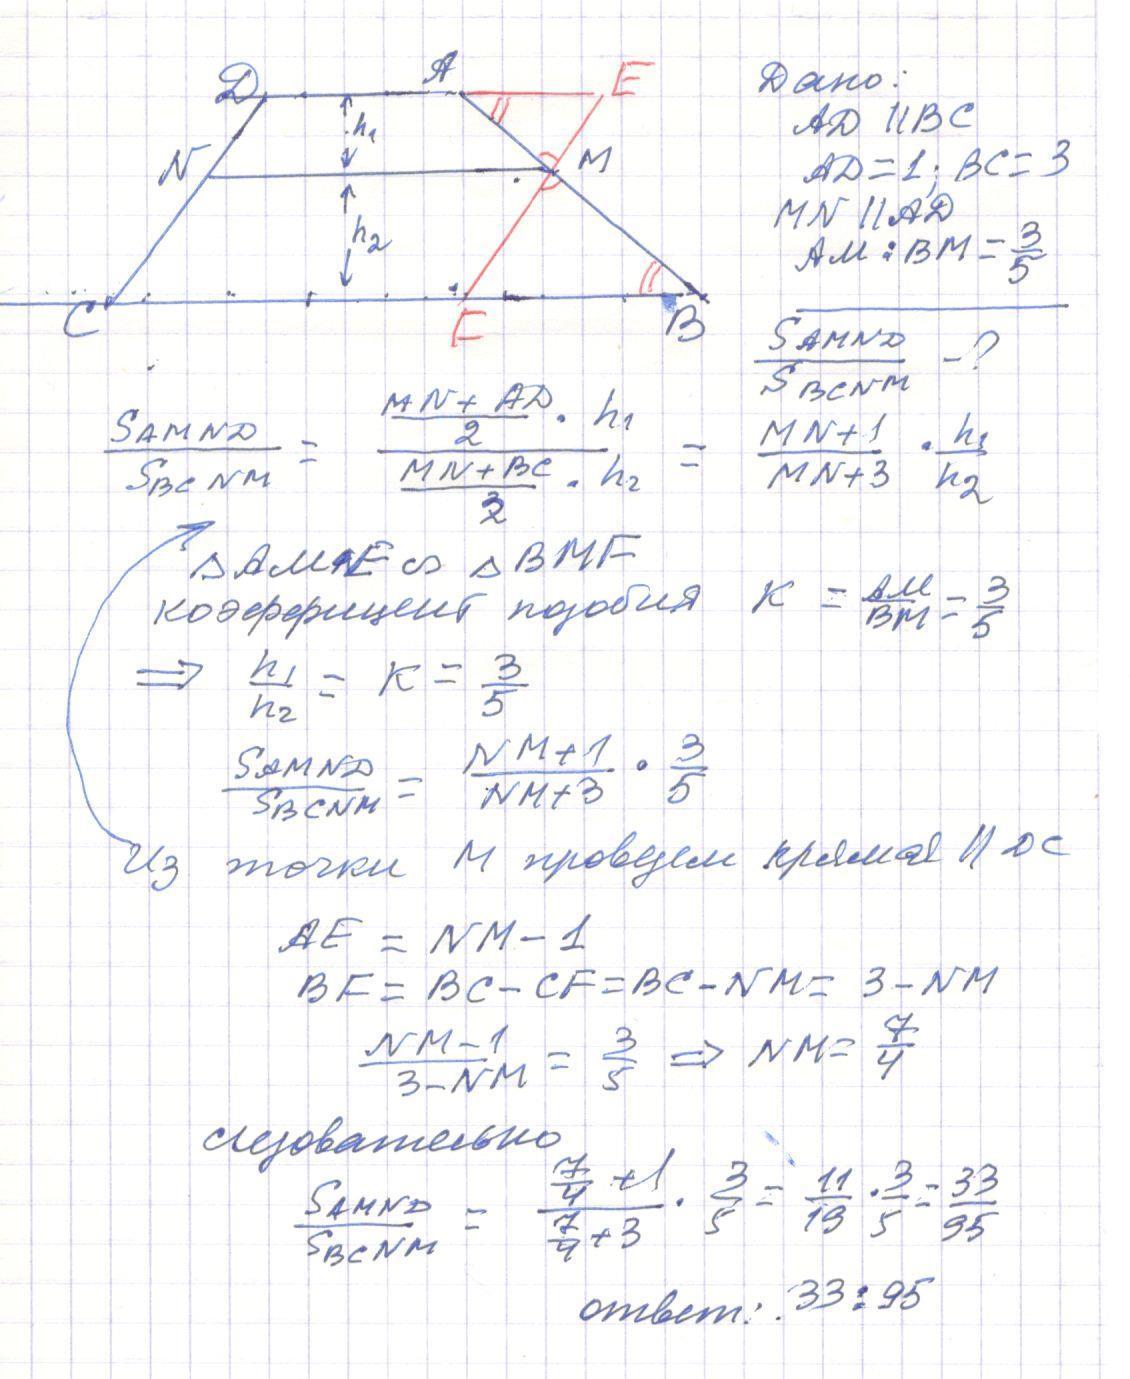 D A E
Дано:
h₁
AD || BC
N M
AD = 1; BC = 3
MN || AD
h₂
AM : BM = 3/5
C F B
S_AMND / S_BCNM - ?
S_AMND / S_BCNM = ((MN + AD)/2 · h₁) / ((MN + BC)/2 · h₂) = (MN + 1)/(MN + 3) · h₁/h₂
△AME ∽ △BMF
коэффицент подобия K = AM/BM = 3/5
⇒ h₁/h₂ = K = 3/5
S_AMND / S_BCNM = (NM + 1)/(NM + 3) · 3/5
Из точки M проведем прямая || DC
AE = NM - 1
BF = BC - CF = BC - NM = 3 - NM
(NM - 1)/(3 - NM) = 3/5 ⇒ NM = 7/4
следовательно
S_AMND / S_BCNM = (7/4 + 1)/(7/4 + 3) · 3/5 = 11/19 · 3/5 = 33/95
ответ: 33 : 95